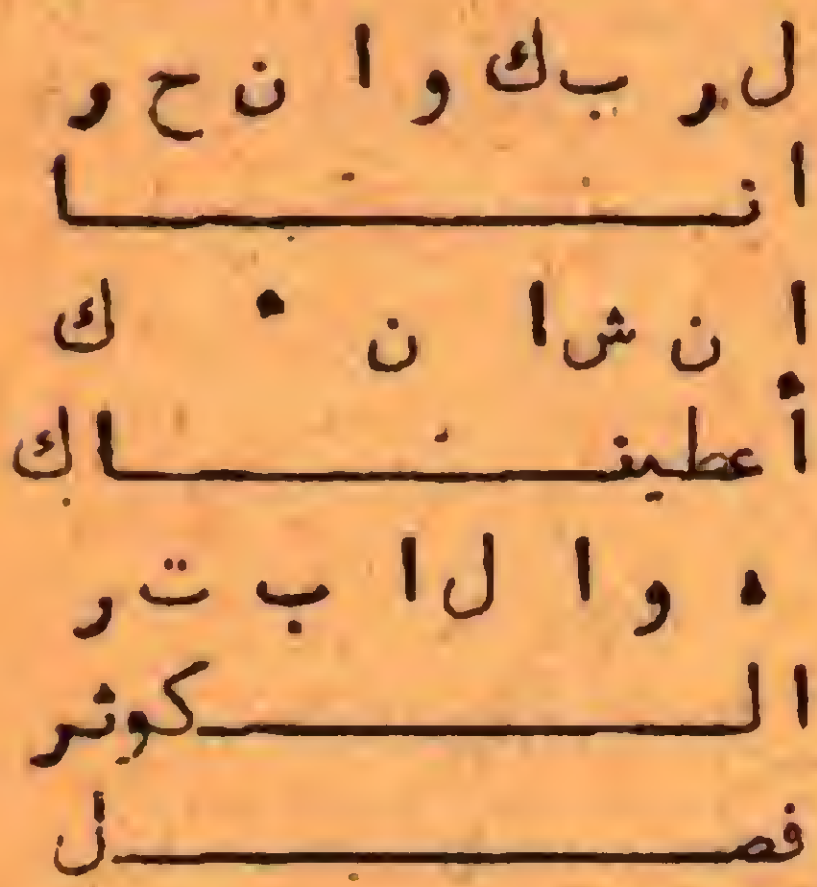 ل ر ب ك و ا ن ح ر
انـــــــا
ا ن ش ا ن ه ك
أعطينـــــــاك
ه و ا ل ا ب ت ر
الـــــــكوثر
فصـــــــل